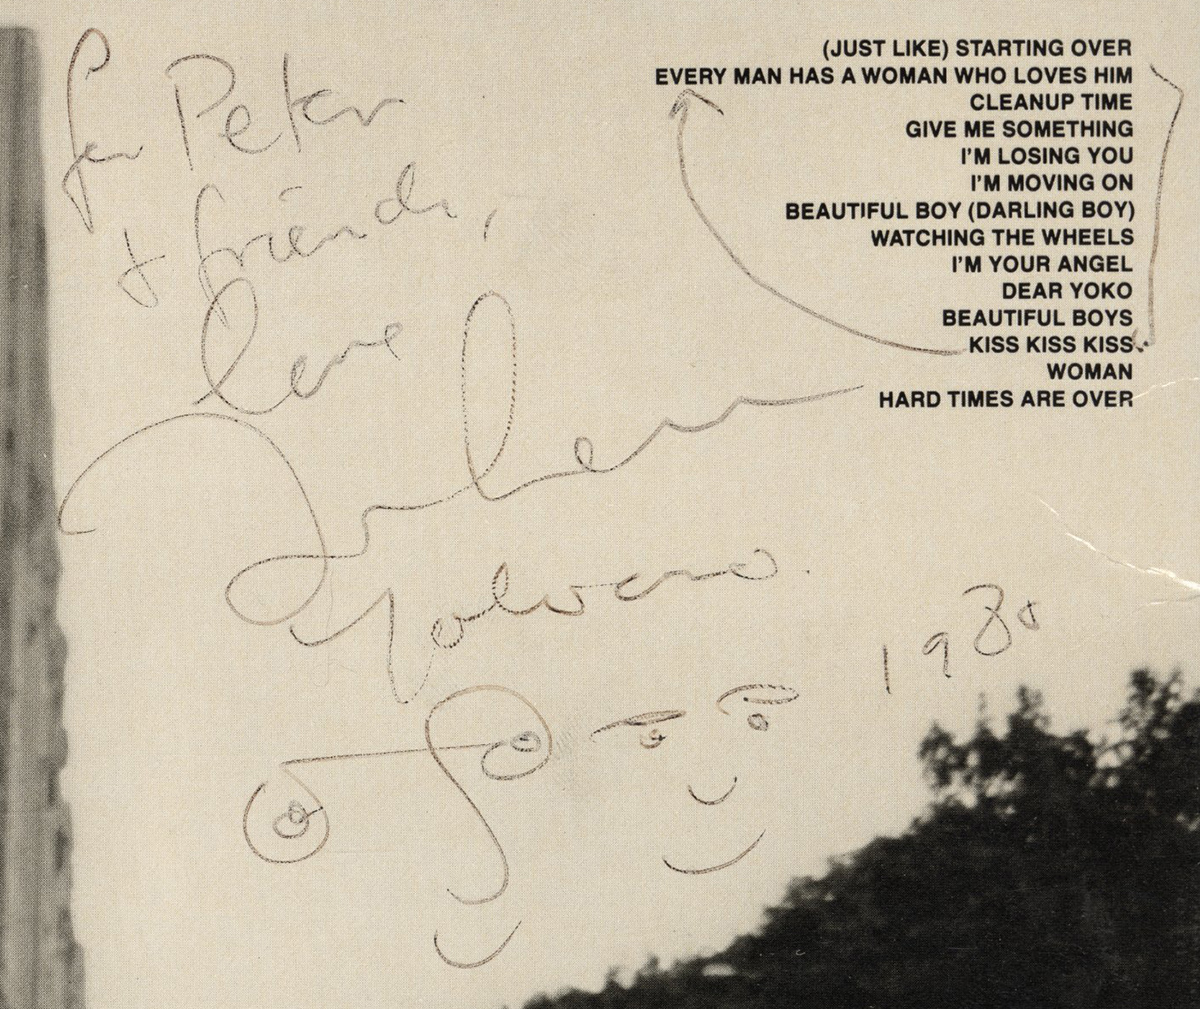 for Peter
& friends,
love
John Lennon
Yoko Ono
1980
(JUST LIKE) STARTING OVER
EVERY MAN HAS A WOMAN WHO LOVES HIM
CLEANUP TIME
GIVE ME SOMETHING
I'M LOSING YOU
I'M MOVING ON
BEAUTIFUL BOY (DARLING BOY)
WATCHING THE WHEELS
I'M YOUR ANGEL
DEAR YOKO
BEAUTIFUL BOYS
KISS KISS KISS
WOMAN
HARD TIMES ARE OVER